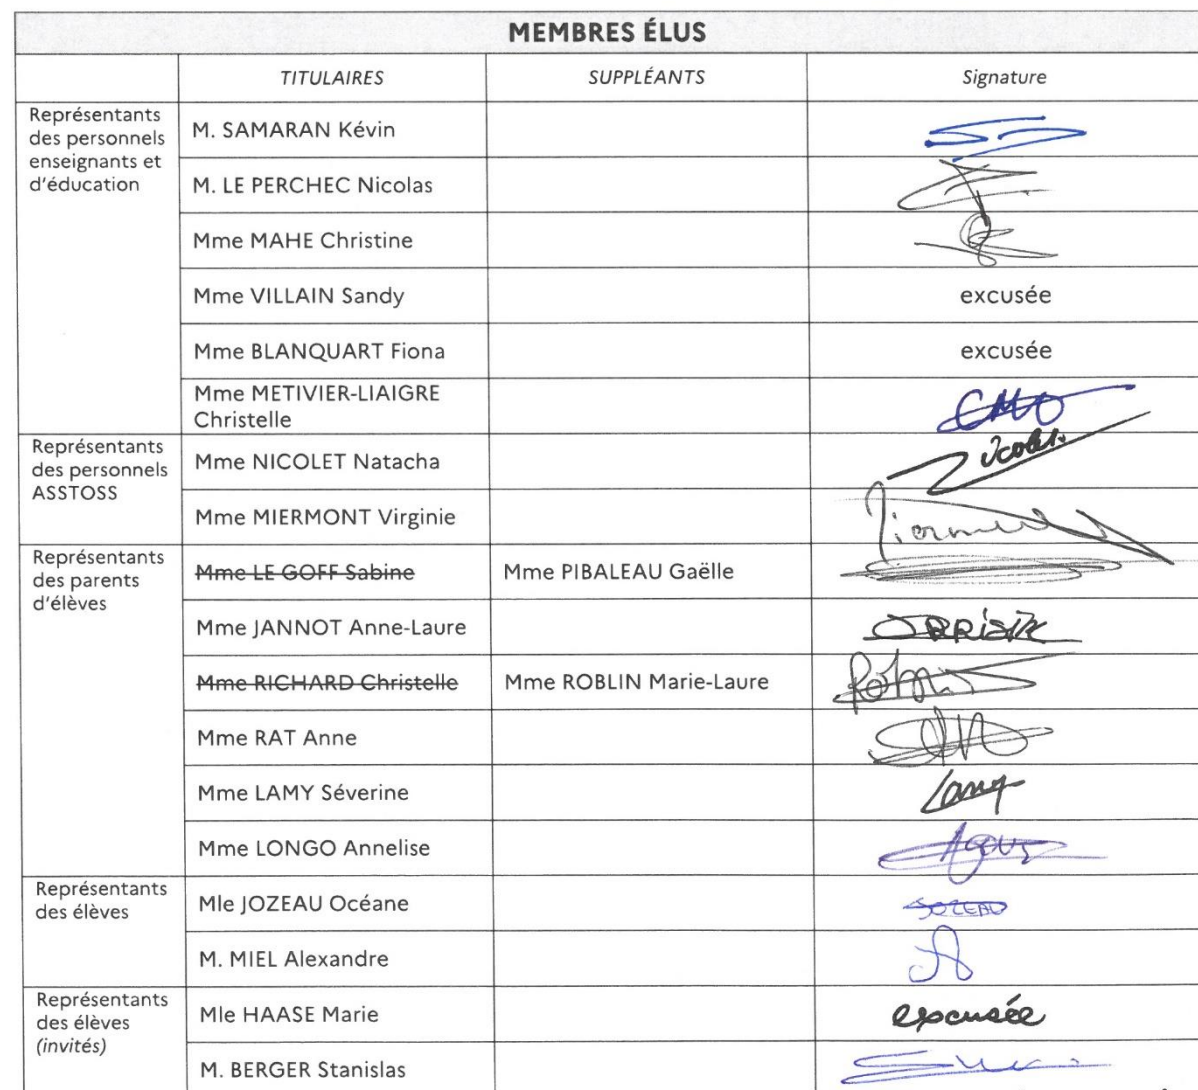 MEMBRES ÉLUS
TITULAIRES SUPPLÉANTS Signature
Représentants
des personnels
enseignants et
d'éducation
M. SAMARAN Kévin
M. LE PERCHEC Nicolas
Mme MAHE Christine
Mme VILLAIN Sandy excusée
Mme BLANQUART Fiona excusée
Mme METIVIER-LIAIGRE
Christelle
Représentants
des personnels
ASSTOSS
Mme NICOLET Natacha
Mme MIERMONT Virginie
Représentants
des parents
d'élèves
Mme LE GOFF Sabine Mme PIBALEAU Gaëlle
Mme JANNOT Anne-Laure
Mme RICHARD Christelle Mme ROBLIN Marie-Laure
Mme RAT Anne
Mme LAMY Séverine Lamy
Mme LONGO Annelise
Représentants
des élèves
Mle JOZEAU Océane JOZEAU
M. MIEL Alexandre
Représentants
des élèves
(invités)
Mle HAASE Marie excusée
M. BERGER Stanislas